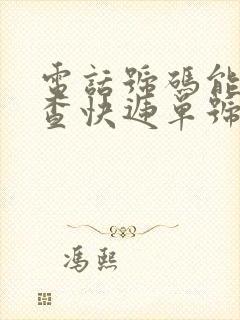 電話號碼能
查快遞單號
馮熙